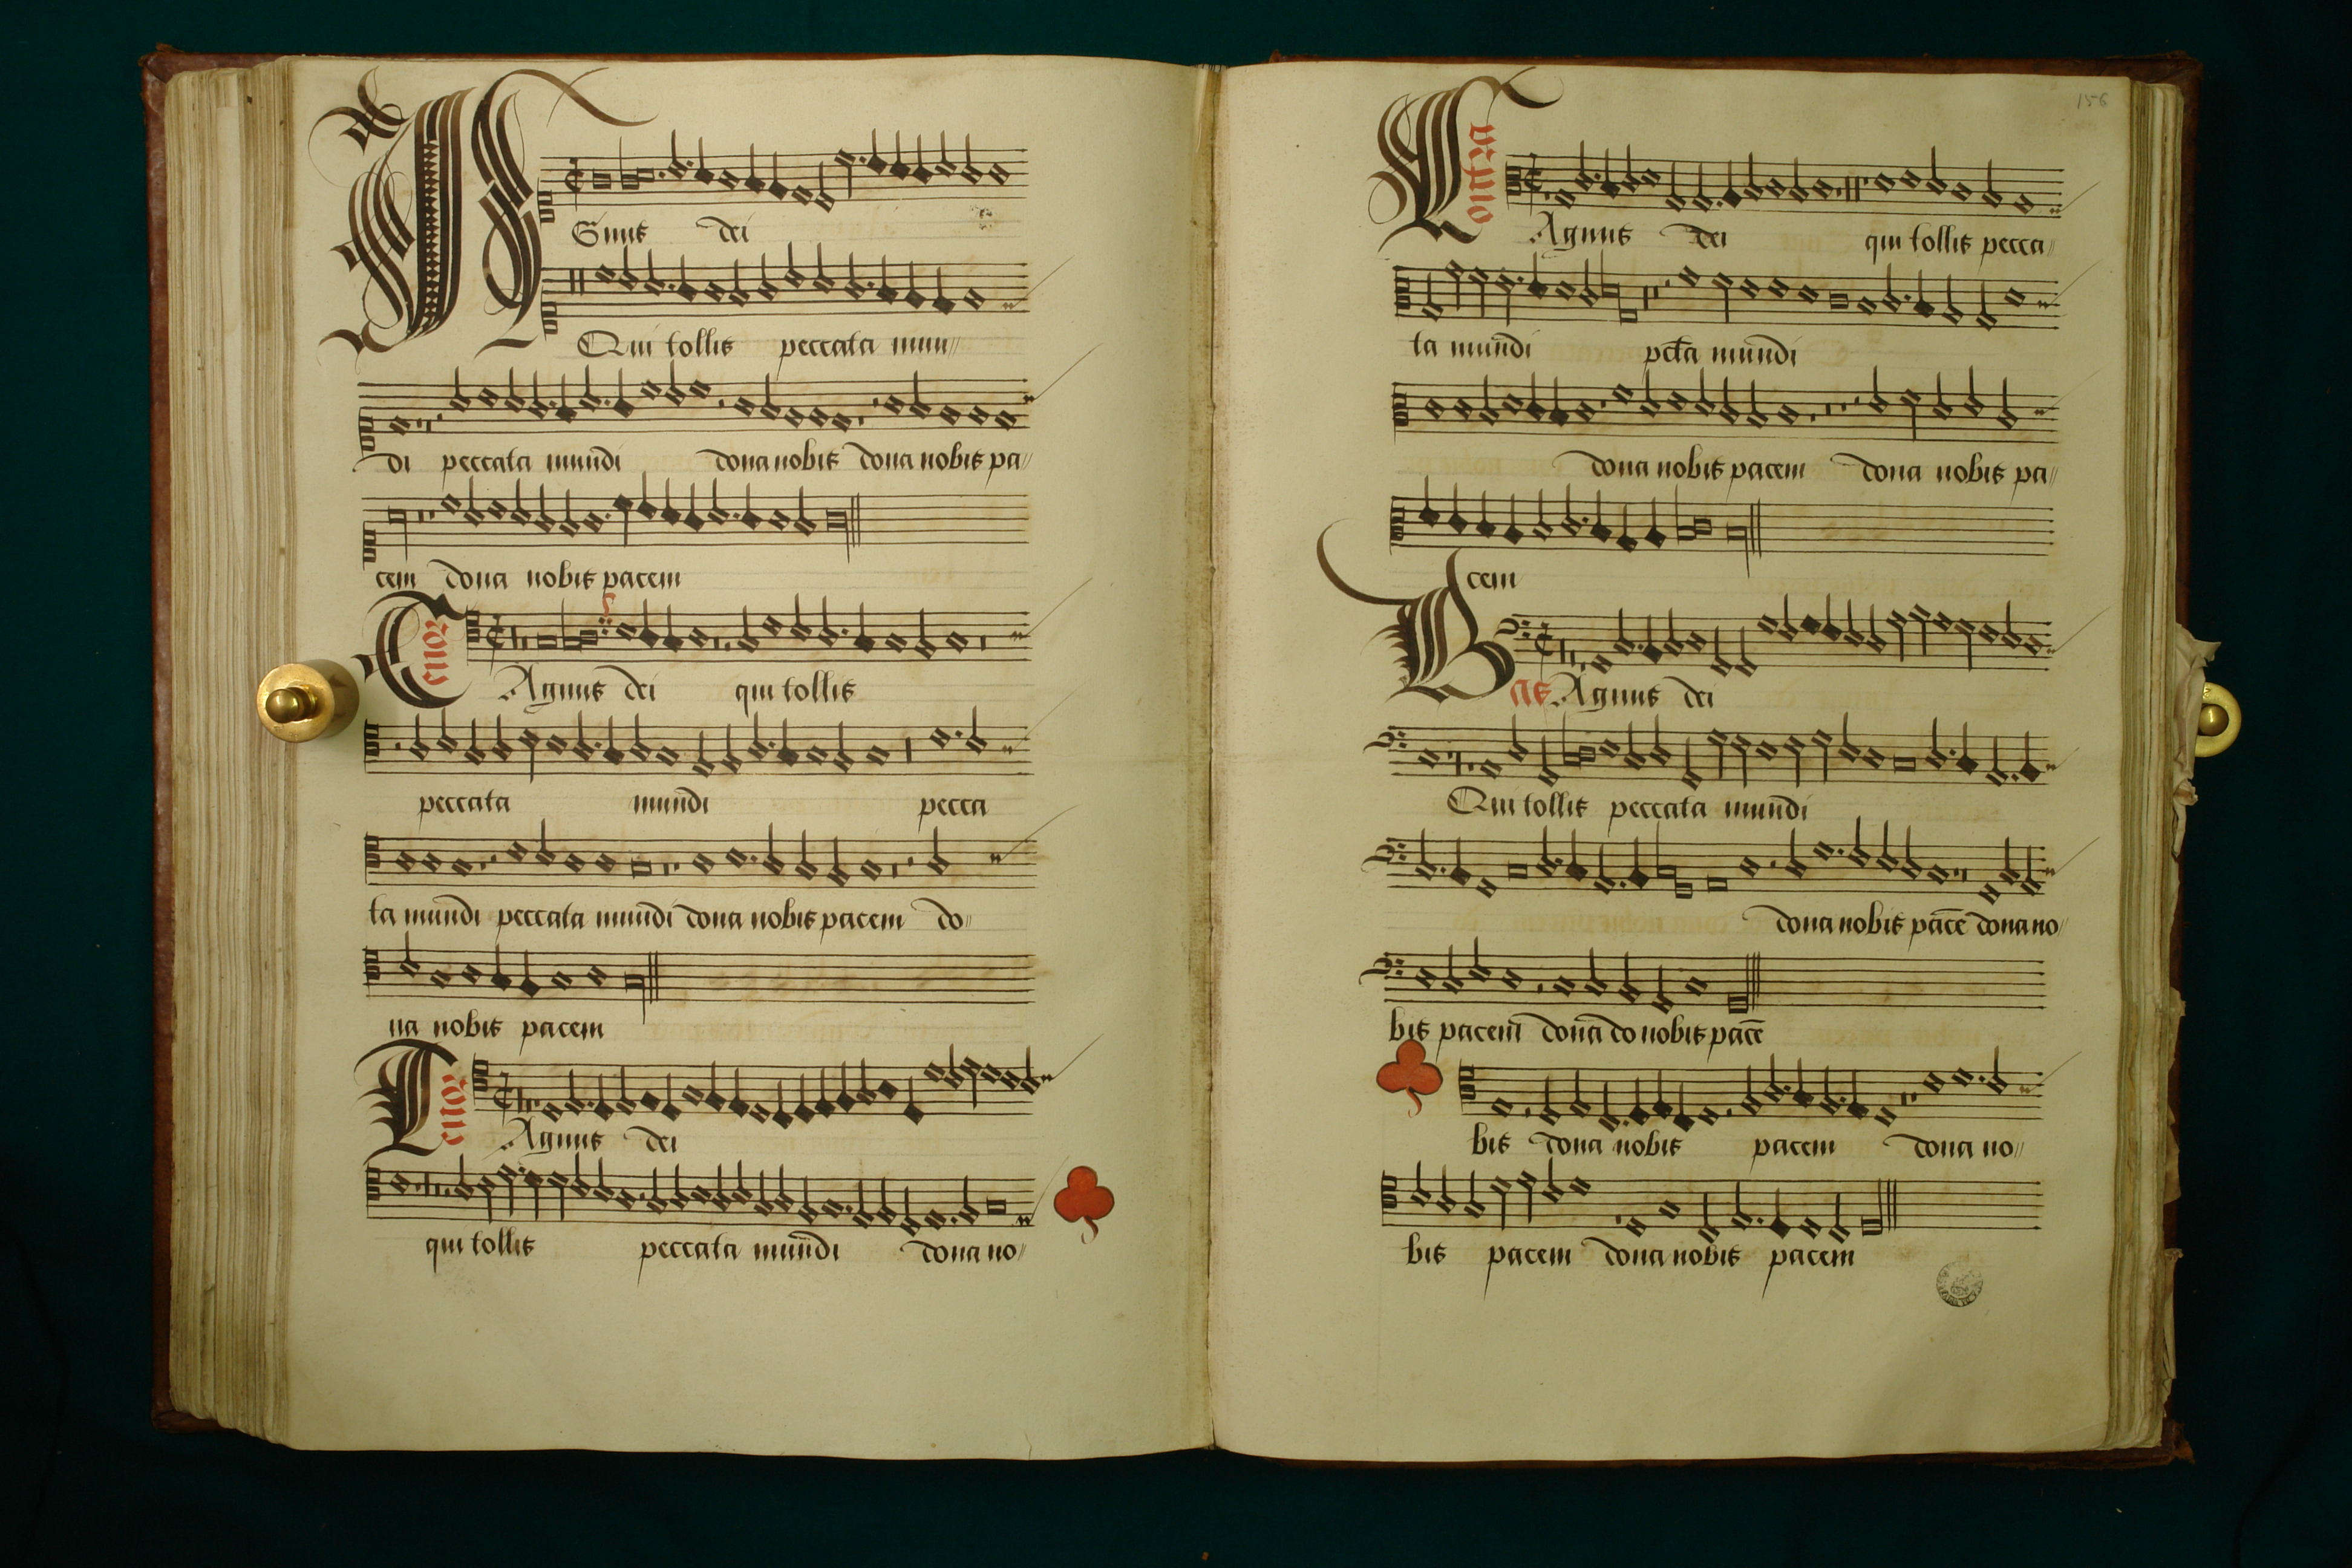 Agnus dei
Qui tollis peccata mun//
di peccata mundi dona nobis dona nobis pa//
cem dona nobis pacem
Tenor
Agnus dei qui tollis
peccata mundi pecca
ta mundi peccata mundi dona nobis pacem do//
na nobis pacem
Tenor
Agnus dei
qui tollis peccata mundi dona no//
156
Agnus dei qui tollis pecca//
ta mundi pcta mundi
dona nobis pacem dona nobis pa//
cem
Bas Agnus dei
Qui tollis peccata mundi
dona nobis pacē dona no//
bis pacem dona do nobis pacē
bis dona nobis pacem dona no//
bis pacem dona nobis pacem